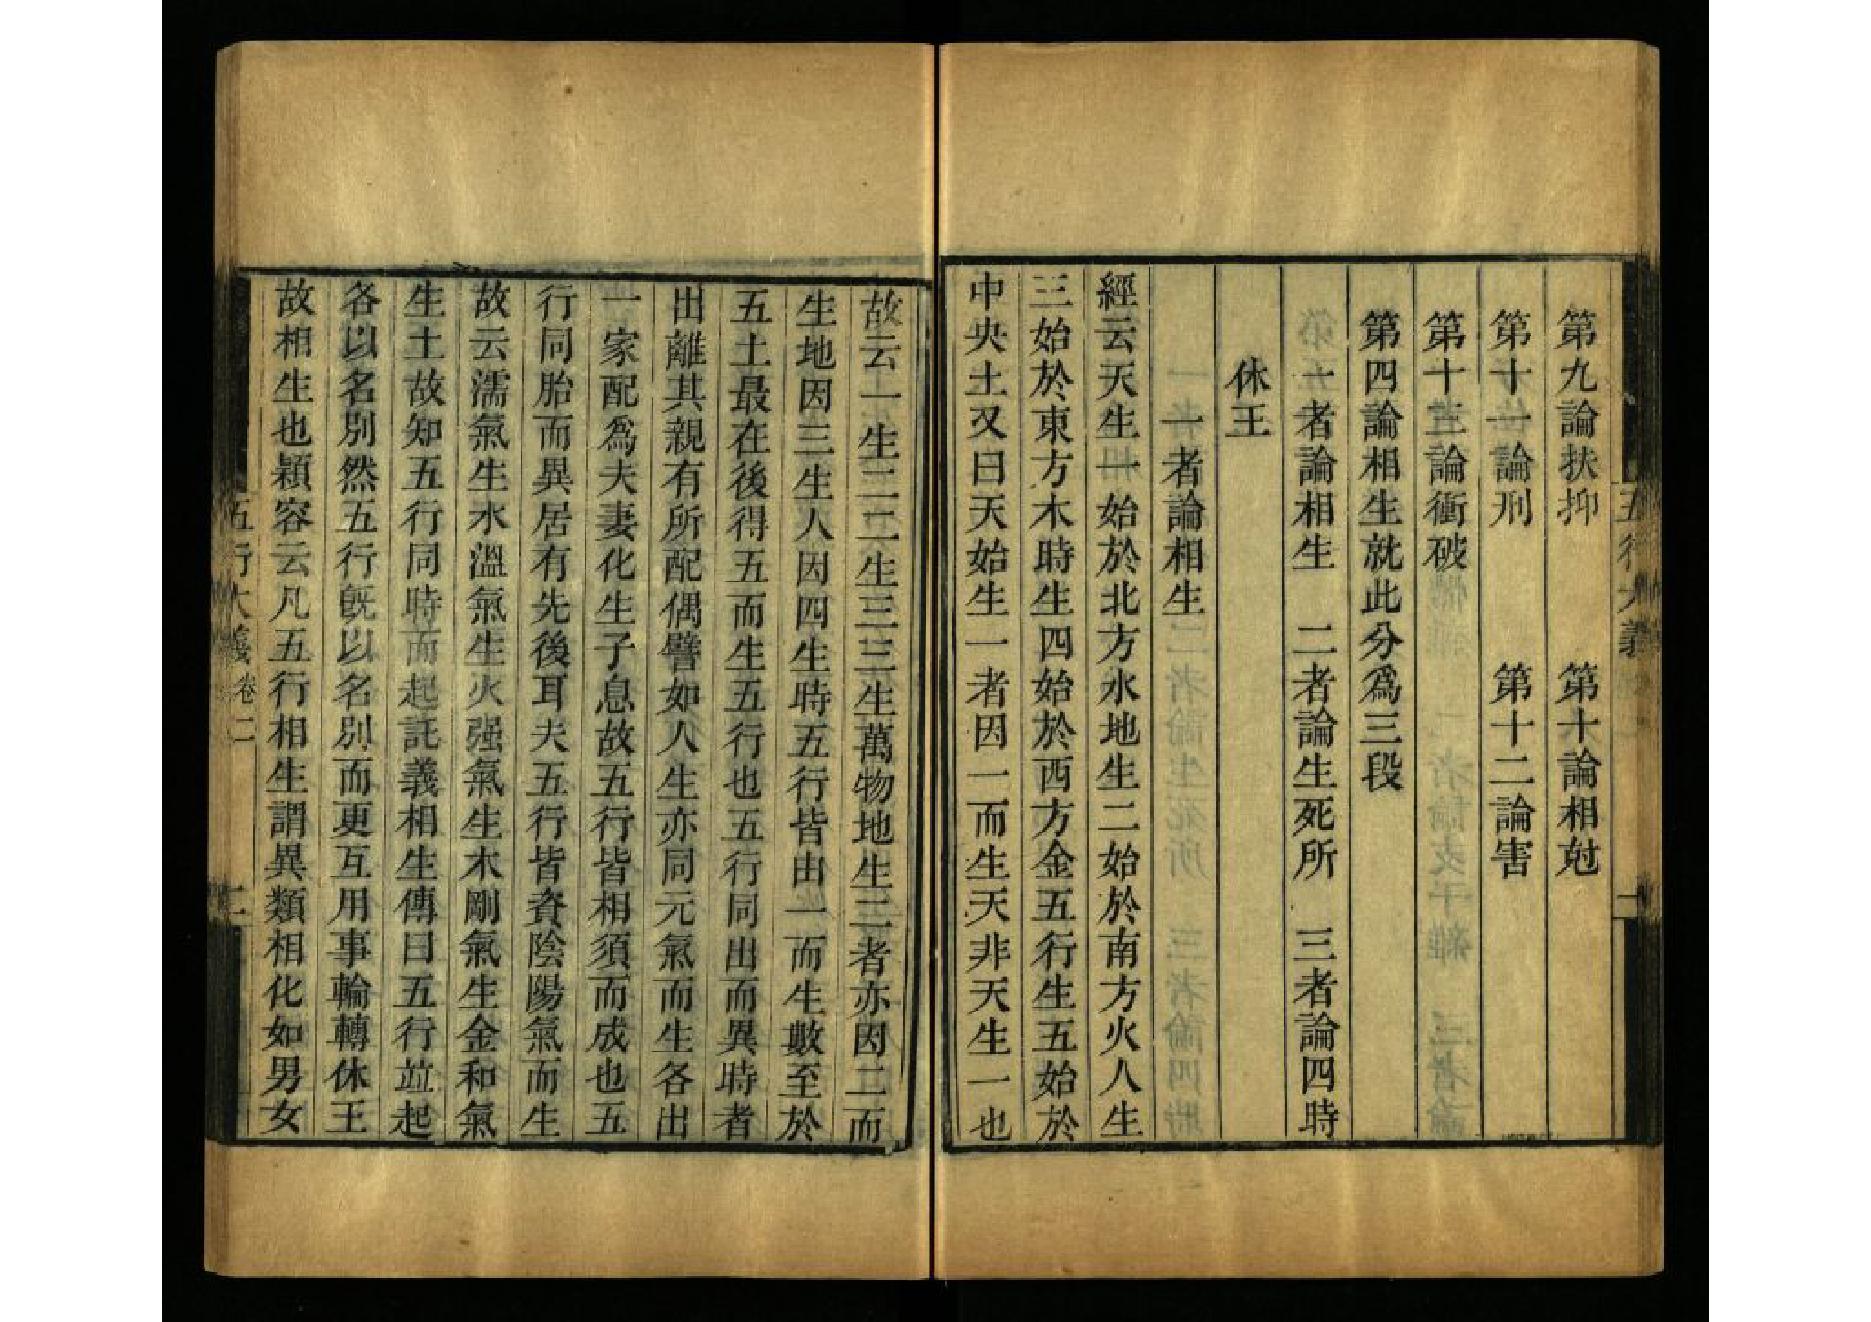 第九論扶抑　第十論相尅
第十一論刑　第十二論害
第十三論衝破
第四論相生就此分爲三段
一者論相生　二者論生死所　三者論四時
休王
一者論相生
經云天生一始於北方水地生二始於南方火人生
三始於東方木時生四始於西方金五行生五始於
中央土又曰天始生一者因一而生天非天生一也
故云一生二二生三三生萬物地生二者亦因二而
生地因三生人因四生時五行皆由一而生數至於
五土最在後得五而生五行也五行同出而異時者
出離其親有所配偶譬如人生亦同元氣而生各出
一家配爲夫妻化生子息故五行皆相須而成也五
行同胎而異居有先後耳夫五行皆資陰陽氣而生
故云濡氣生水溫氣生火强氣生木剛氣生金和氣
生土故知五行同時而起託義相生傳曰五行竝起
各以名別然五行旣以名別而更互用事輪轉休王
故相生也穎容云凡五行相生謂異類相化如男女
五行大義卷二
二